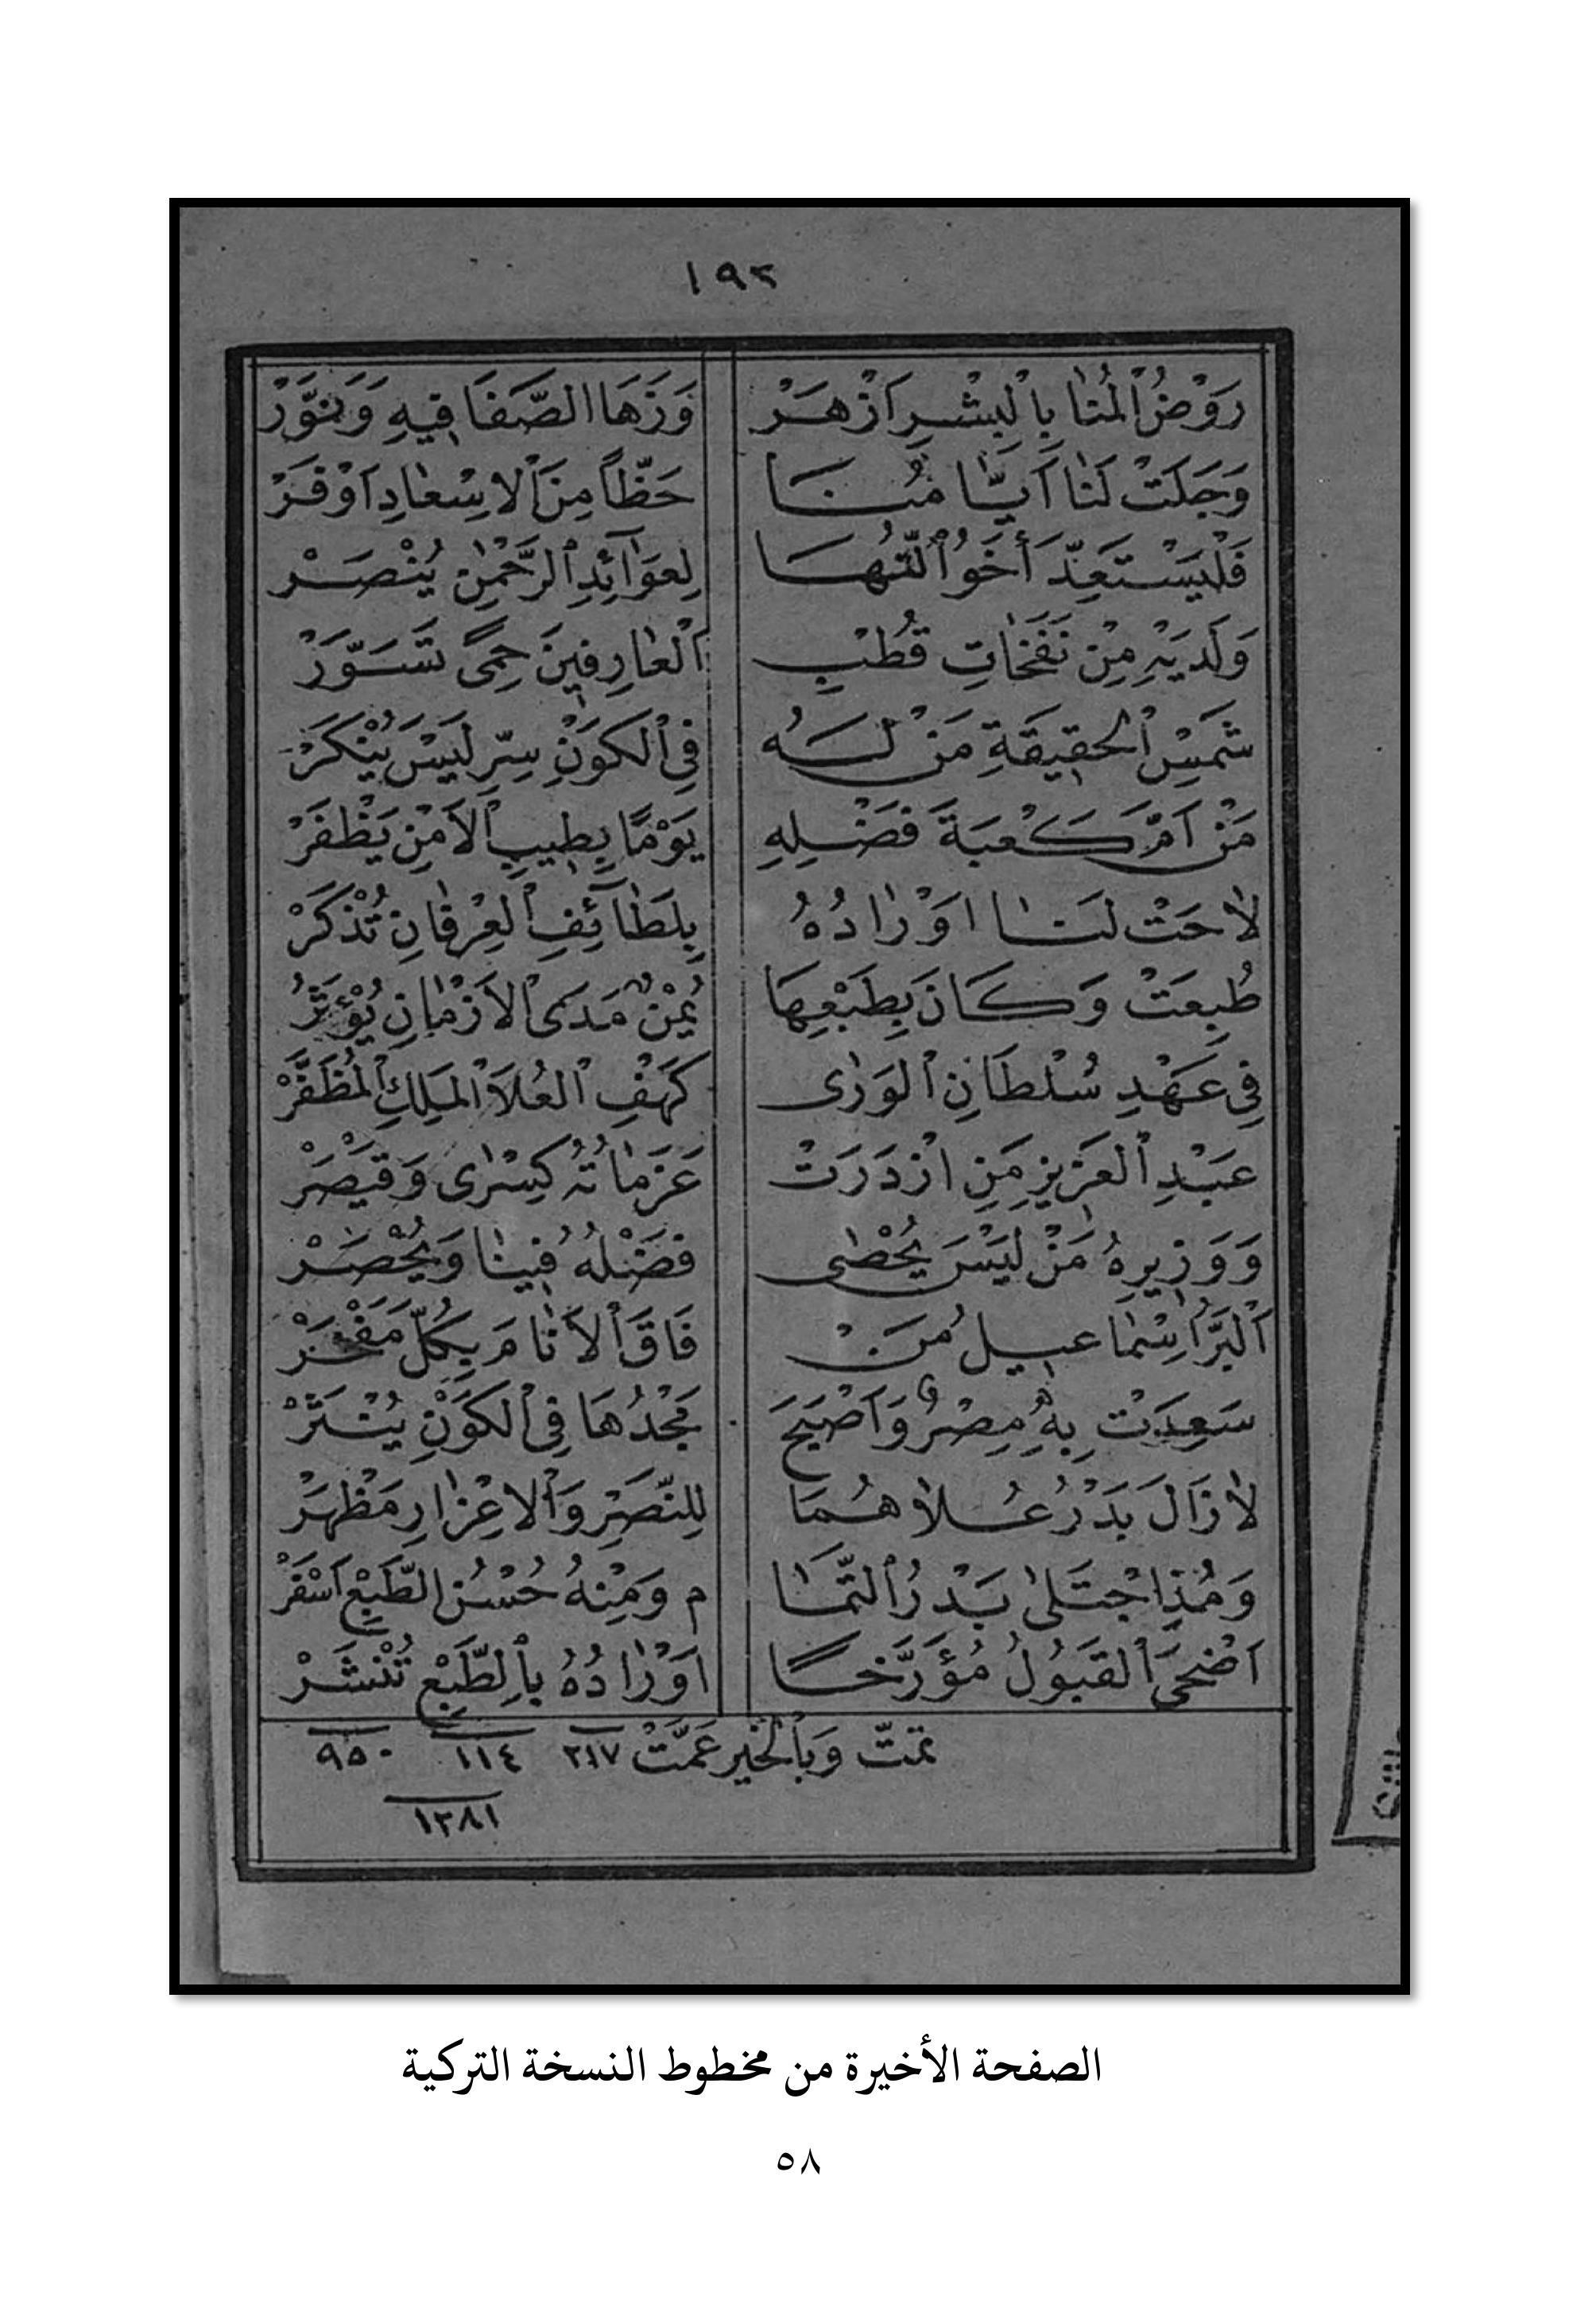 ١٩٢
رَوْضُ ٱلْمُنَا بِالْبِشْرِ اَزْهَرْ وَزَهَا الصَّفَا فِيهِ وَنَوَّرْ
وَجَلَتْ لَنَا اَيَّامُنَا حَظًّا مِنَ ٱلاِسْعَادِ اَوْفَرْ
فَلْيَسْتَعِدَّ أَخُو ٱلنُّهَا لِعَوَآئِدِ ٱلرَّحْمٰنِ يُنْصَرْ
وَلَدَيْهِ مِنْ نَفَحَاتِ قُطْبِ ٱلْعَارِفِينَ حِمًى تَسَوَّرْ
شَمْسِ ٱلْحَقِيقَةِ مَنْ لَهُ فِى ٱلْكَوْنِ سِرٌّ لَيْسَ يُنْكَرْ
مَنْ اَمَّ كَعْبَةَ فَضْلِهِ يَوْمًا بِطِيبِ ٱلاَمْنِ يَظْفَرْ
لاَحَتْ لَنَا اَوْرَادُهُ بِلَطَآئِفِ ٱلْعِرْفَانِ تُذْكَرْ
طُبِعَتْ وَكَانَ بِطَبْعِهَا يُمْنٌ مَدَى ٱلاَزْمَانِ يُؤْثَرْ
فِى عَهْدِ سُلْطَانِ ٱلْوَرٰى كَهْفِ ٱلْعُلاَ ٱلْمَلِكِ ٱلْمُظَفَّرْ
عَبْدِ ٱلْعَزِيزِ مَنِ ازْدَرَتْ عَزَمَاتُهُ كِسْرٰى وَقَيْصَرْ
وَوَزِيرِهُ مَنْ لَيْسَ يُحْصٰى فَضْلُهُ فِينَا وَيُحْصَرْ
اَلْبَرُّ اِسْمَاعِيلُ مَنْ فَاقَ ٱلاَنَامَ بِكُلِّ مَفْخَرْ
سَعِدَتْ بِهِ مِصْرٌ وَاَصْبَحَ مَجْدُهَا فِى ٱلْكَوْنِ يُنْثَرْ
لاَزَالَ بَدْرُ عُلاَهُمَا لِلنَّصْرِ وَٱلاِعْزَازِ مَظْهَرْ
وَمُذِ اجْتَلٰى بَدْرُ ٱلتَّمَا م وَمِنْهُ حُسْنُ الطَّبْعِ اَسْفَرْ
اَضْحَى ٱلْقَبُولُ مُؤَرِّخًا اَوْرَادُهُ بِٱلطَّبْعِ تُنْشَرْ
تمتّ وَبِٱلْخَيْرِ عَمَّتْ ٢١٧ ١١٤ ٩٥٠
١٢٨١
الصفحة الأخيرة من مخطوط النسخة التركية
٥٨